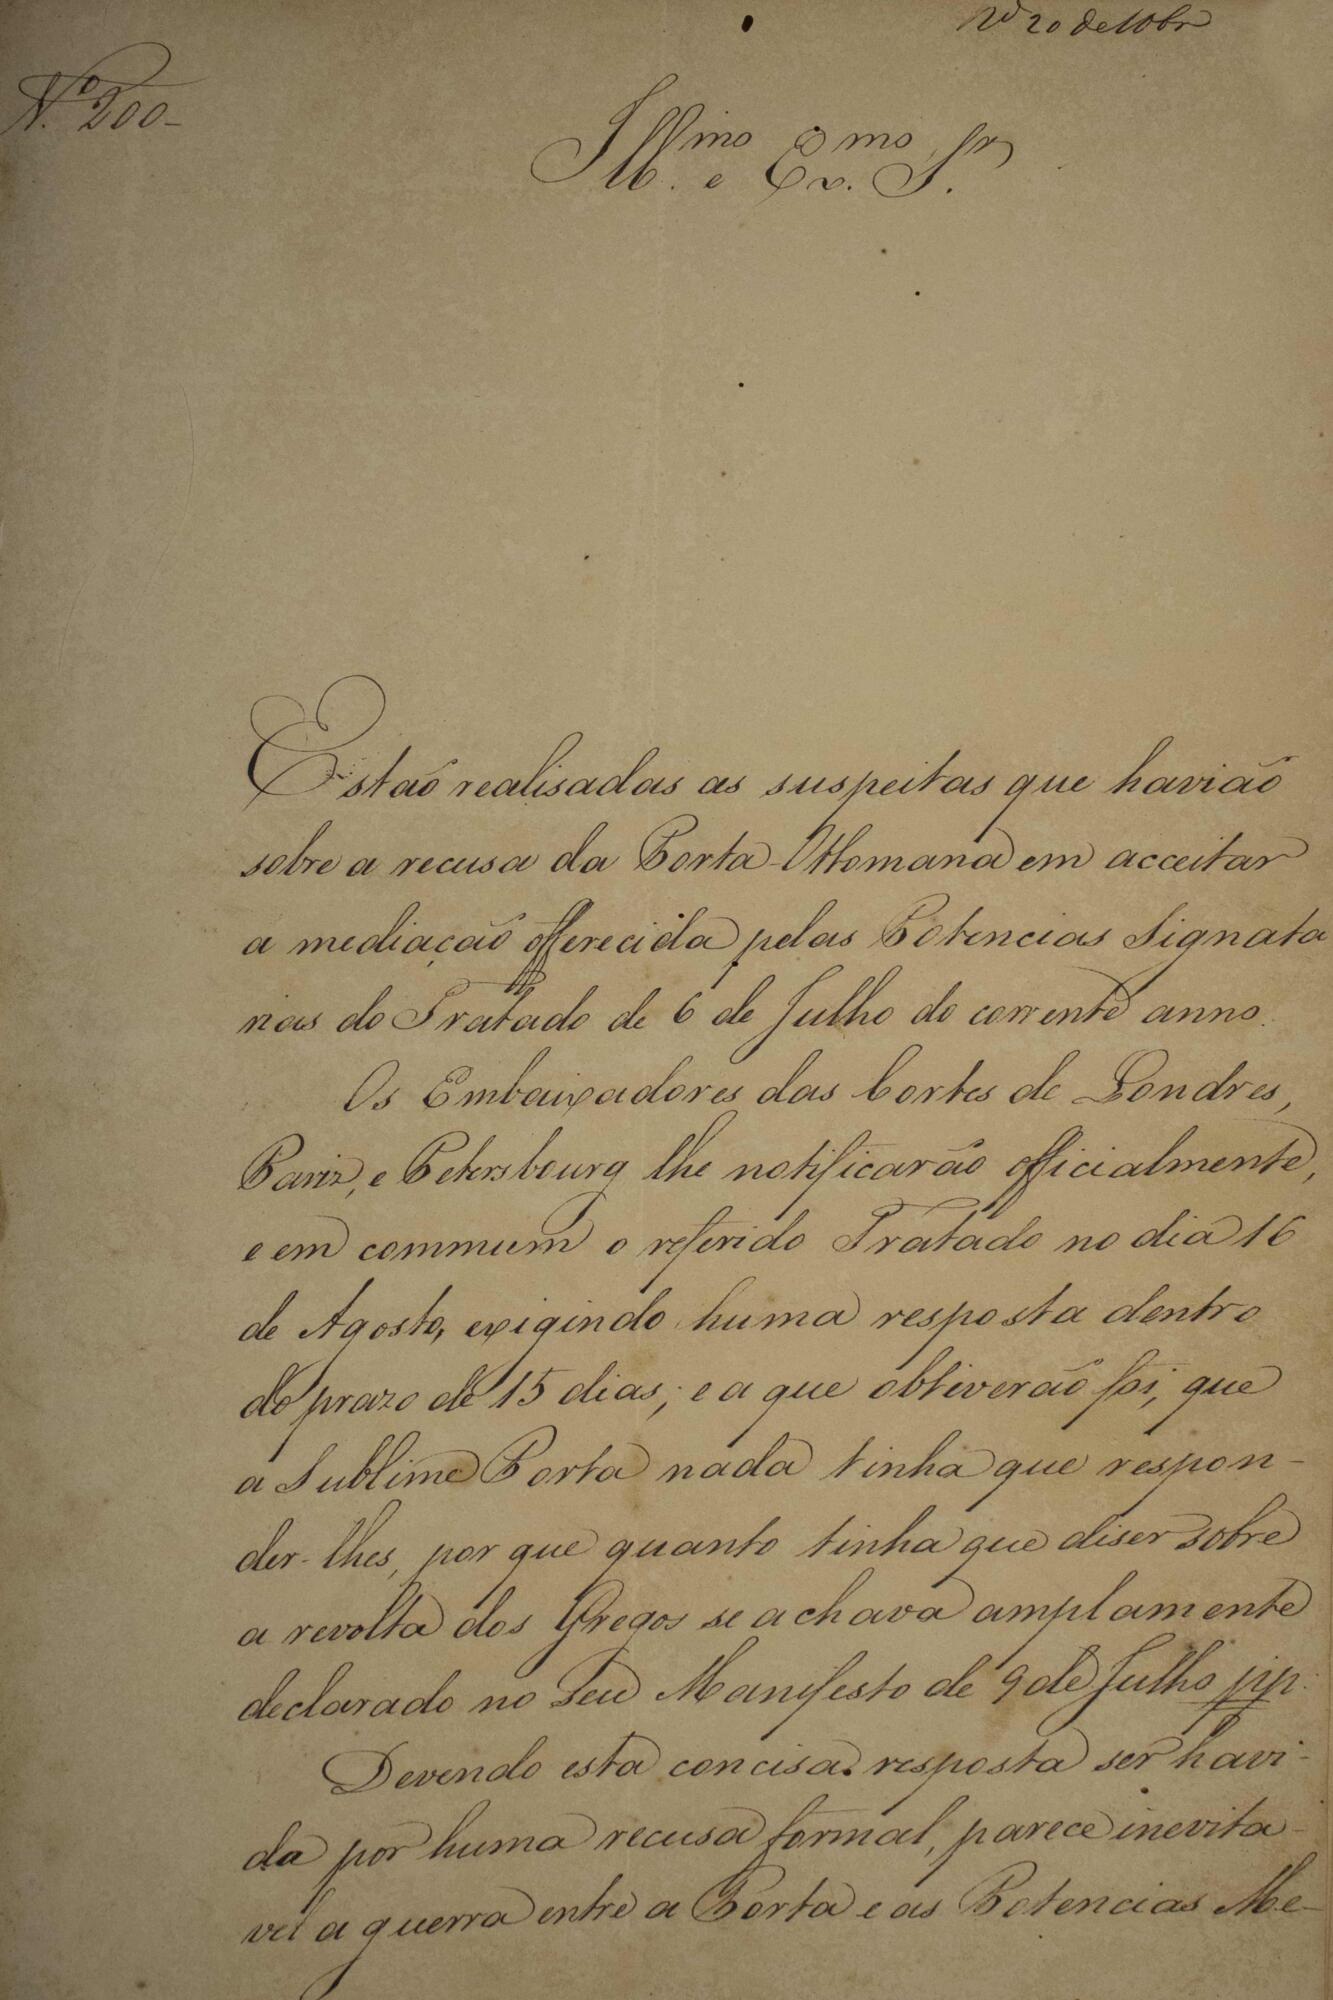 Rd 20 de 10br
N.º 200-
Ill.mo e Ex.mo Sr.
Estaõ realisadas as suspeitas que havião
sobre a recusa da Porta Ottomana em acceitar
a mediaçaõ offerecida pelas Potencias Signata
rias do Tratado de 6 de Julho do corrente anno.
Os Embaixadores das Cortes de Londres,
Pariz, e Petersbourg lhe notificarão officialmente,
e em commum o referido Tratado no dia 16
de Agosto, exigindo huma resposta dentro
do prazo de 15 dias; e a que obtiverão foi, que
a Sublime Porta nada tinha que respon-
der-lhes, por que quanto tinha que diser sobre
a revolta dos Gregos se achava amplamente
declarado no Seu Manifesto de 9 de Julho pp.
Devendo esta concisa resposta ser havi-
da por huma recusa formal, parece inevita-
vel a guerra entre a Porta e as Potencias Me-